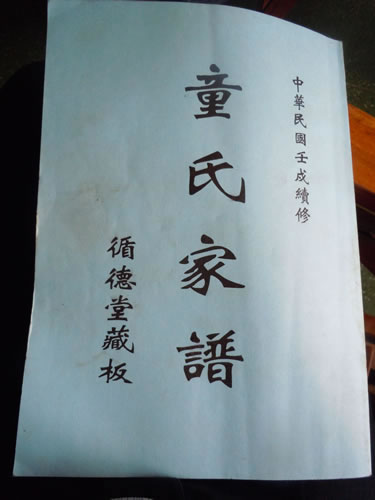 中華民國壬戌續修
童氏家譜
循德堂藏板